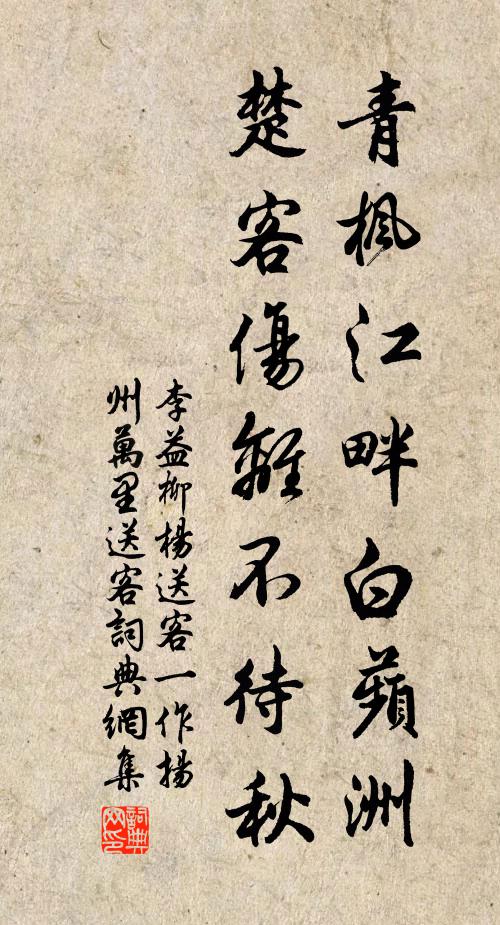 青楓江畔白蘋洲
楚客傷離不待秋
李益柳楊送客一作揚
州萬里送客詞典網集
詞典
网印